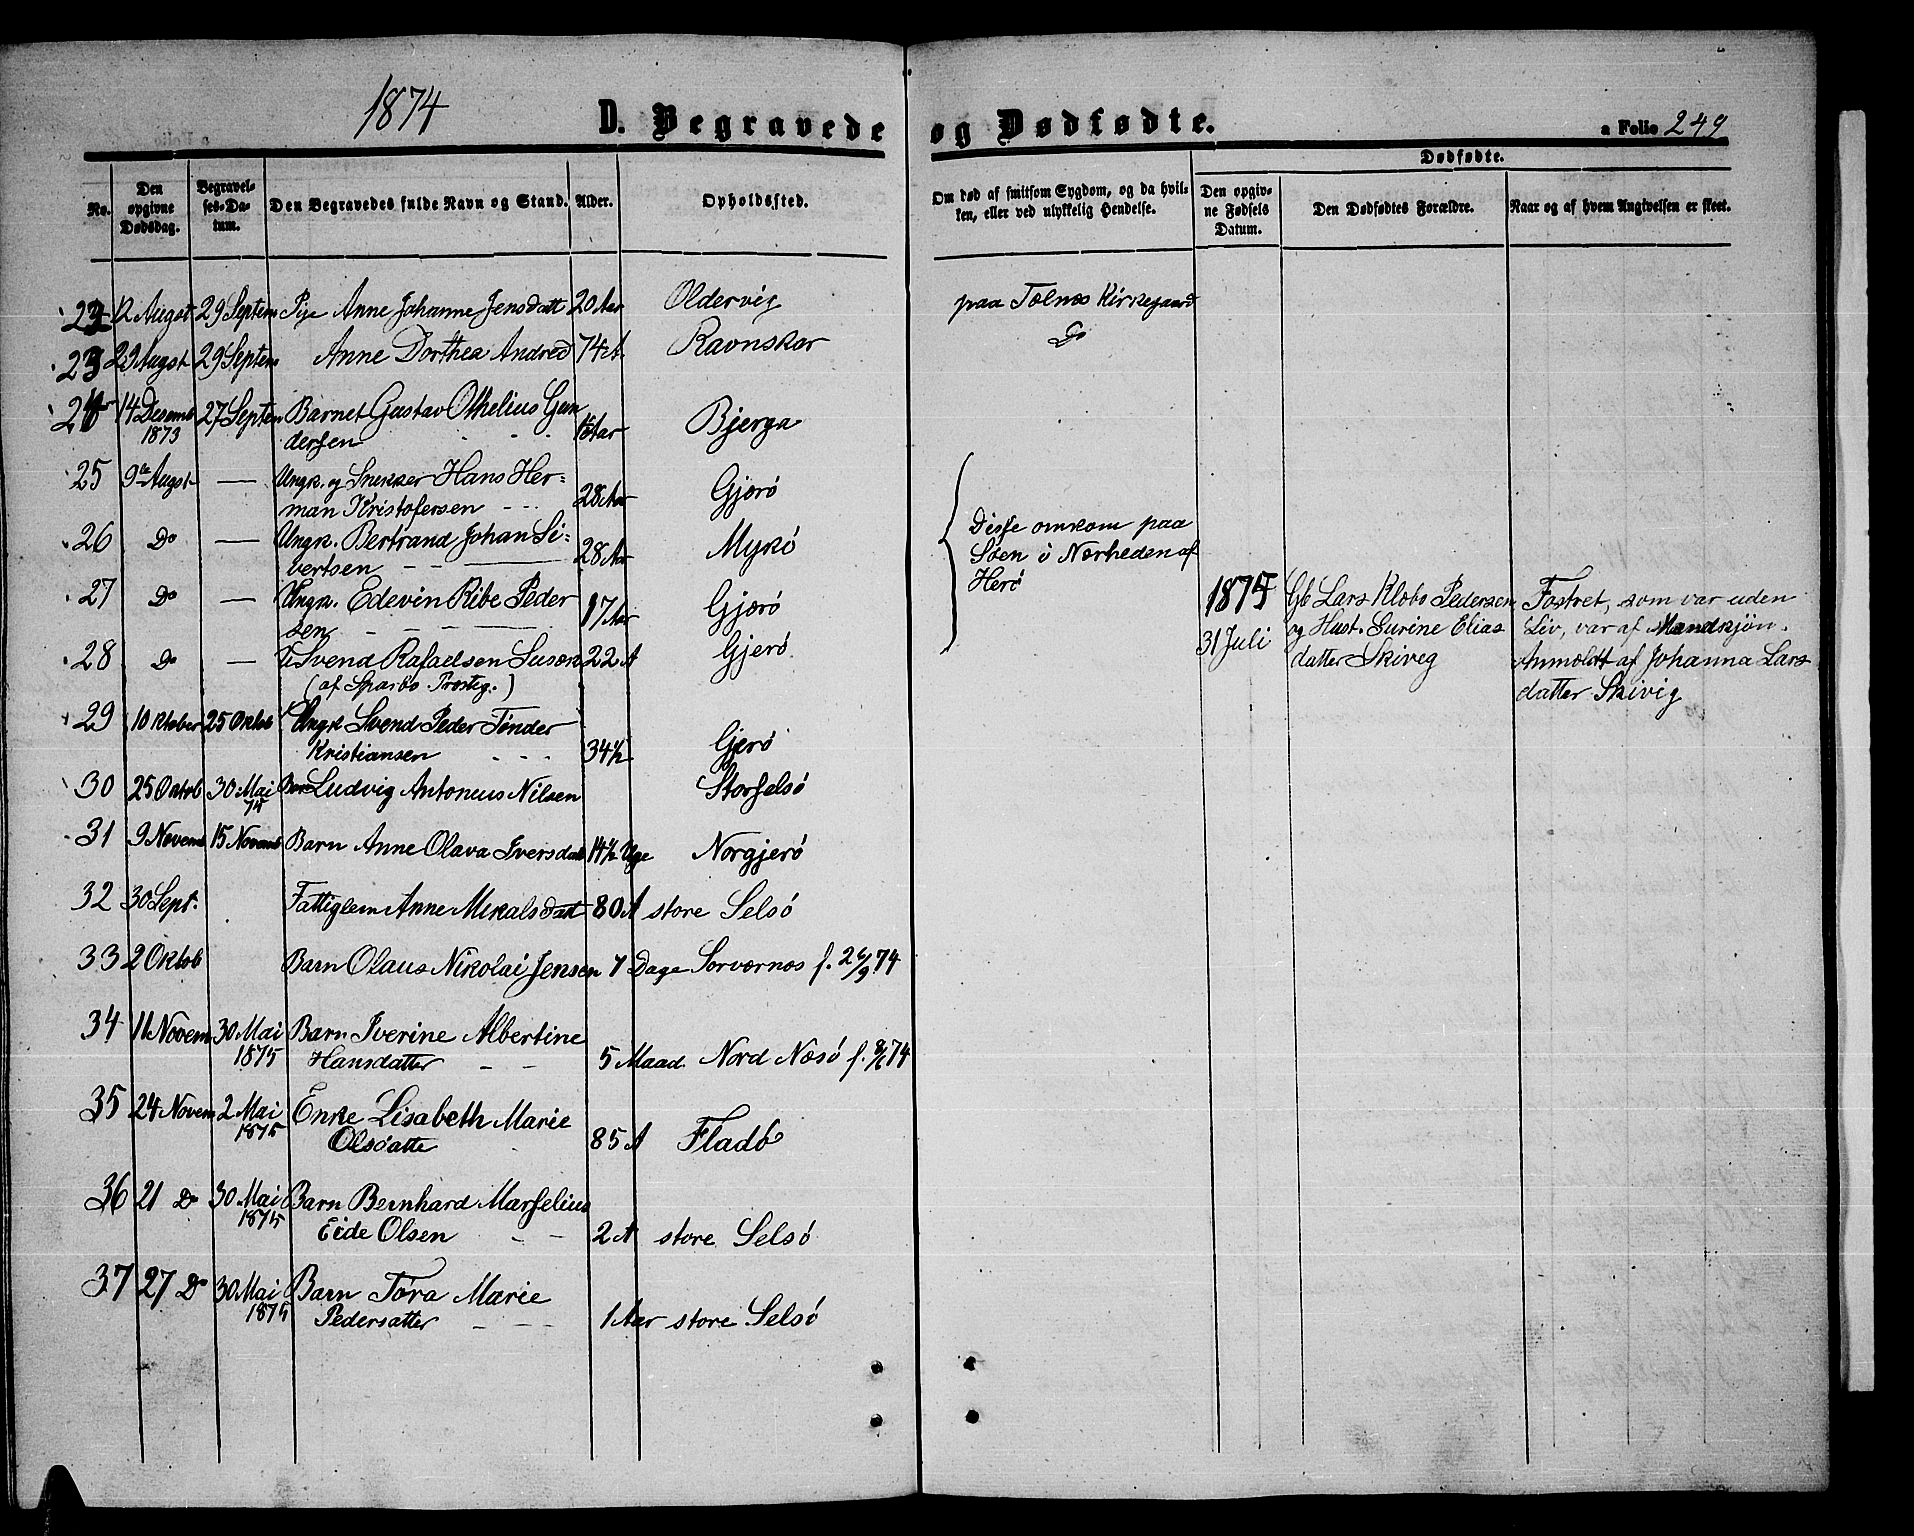 1874
D. Begravede og Dødfødte.
a Folio 249
No.
Den opgivne Dødsdag.
Begravelses-Datum.
Den Begravedes fulde Navn og Stand.
Alder.
Opholdssted.
Om død af smitsom Sygdom, og da hvilken, eller ved ulykkelig Hendelse.
Dødfødte.
Den opgivne Fødsels Datum.
Den Dødfødtes Forældre.
Naar og af hvem Angivelsen er skeet.
12 Augst 29 Septem Pige Anne Johanne Jensdatt 20 Aar Oldervig paa Tælnes Kirkegaard
23 29 Augst 29 Septem Anne Dorthea Andred 74 A. Ravnskar Do
24 14 Desemb 27 Septem Barnet Gustav Othelius Gun
1873 dersen Aar Bjerga
25 9de Augst — Ungk. og Snekker Hans Her-
man Kristofersen - - - 28 Aar Gjerø
26 Do — Ungk. Bertrand Johan Si-
bertsen — — 28 Aar Mykø
Disse omkom paa
Søen i Nærheden af
Herø
27 Do — Ungk. Edevin Ribe Peder
sen — — 17 Aar Gjerø
28 Do — Svend Rafaelsen 22 A Gjerø
(af Sparbo Præsteg.)
1875 Gb Lars Klæbo Pedersen Fostret, som var uden
31 Juli og Hust. Surine Elias Liv, var af Mandkjøn.
datter Skiveg Anmeldt af Johanna Lars
datter Skivig
29 10 ktober 25 Oktob Ungk Svend Peder Tønder
Kristiansen - - - 34½ Gjerø
30 25 Oktob 30 Mai Barn Ludvig Antoneus Nilsen Storselsø
75
31 9 Novemb 15 Novemb Barn Anne Olava Iversdatt 14½ Uge Norgjerø
32 30 Sept. Fattiglem Anne Mikalsdatt 80 A store Selsø
33 2 Oktob Barn Olaus Nikolai Jensen 7 Dage Sørværnes f. 26/9 74
34 11 Novem 30 Mai Barn Iverine Albertine
1875 Hansdatter — — 5 Maad. Nord Næsø f. 8/6 74
35 24 Novem 2 Mai Enke Lisabeth Marie
1875 Olsdatte - 85 A Fladø
36 21 Do 30 Mai Barn Bernhard Marselius
1875 Eide Olsen — — 2 A store Selsø
37 27 Do 30 Mai Barn Tora Marie
1875 Pedersatter — — 1 Aar store Selsø